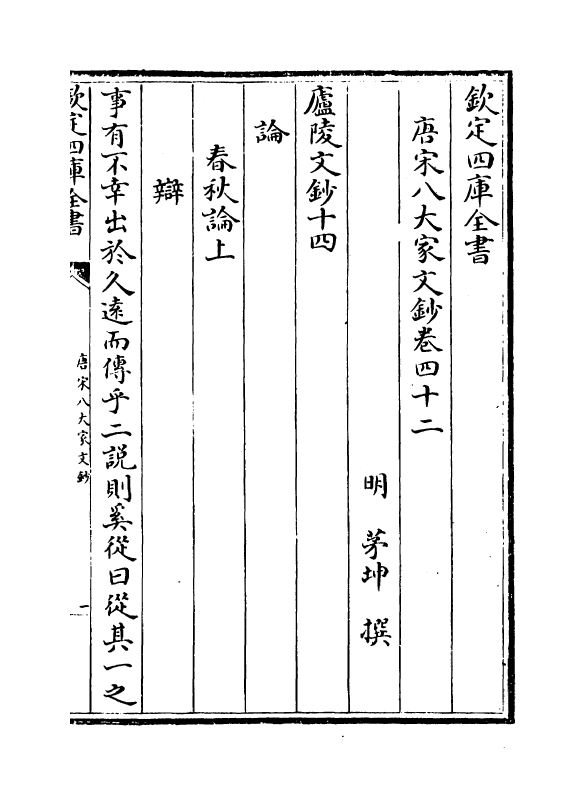 欽定四庫全書
唐宋八大家文鈔卷四十二
明 茅坤 撰
廬陵文鈔十四
論
春秋論上
辯
事有不幸出於久遠而傳乎二説則奚從曰從其一之
欽定四庫全書
唐宋八大家文鈔
一